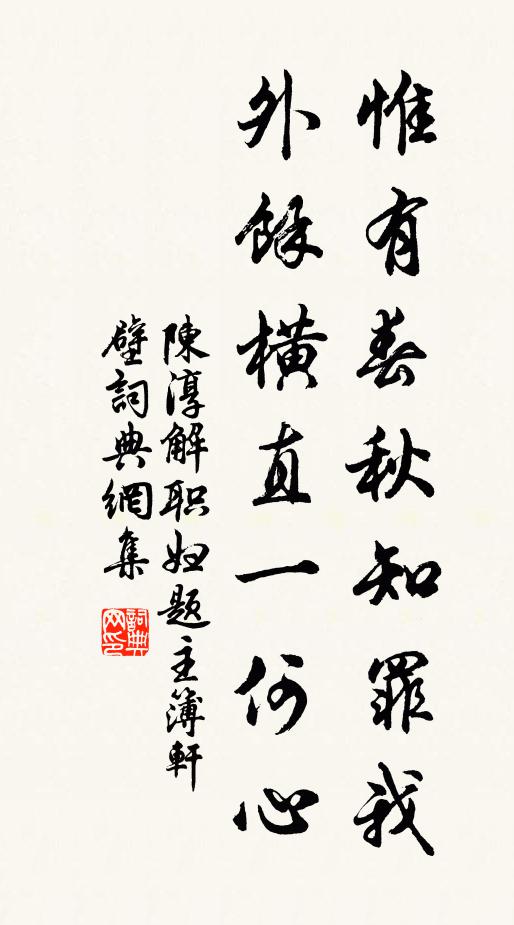 惟有春秋知罪我
外餘横直一何心
陳淳解职如题主簿軒
壁詞典網集
詞典网印